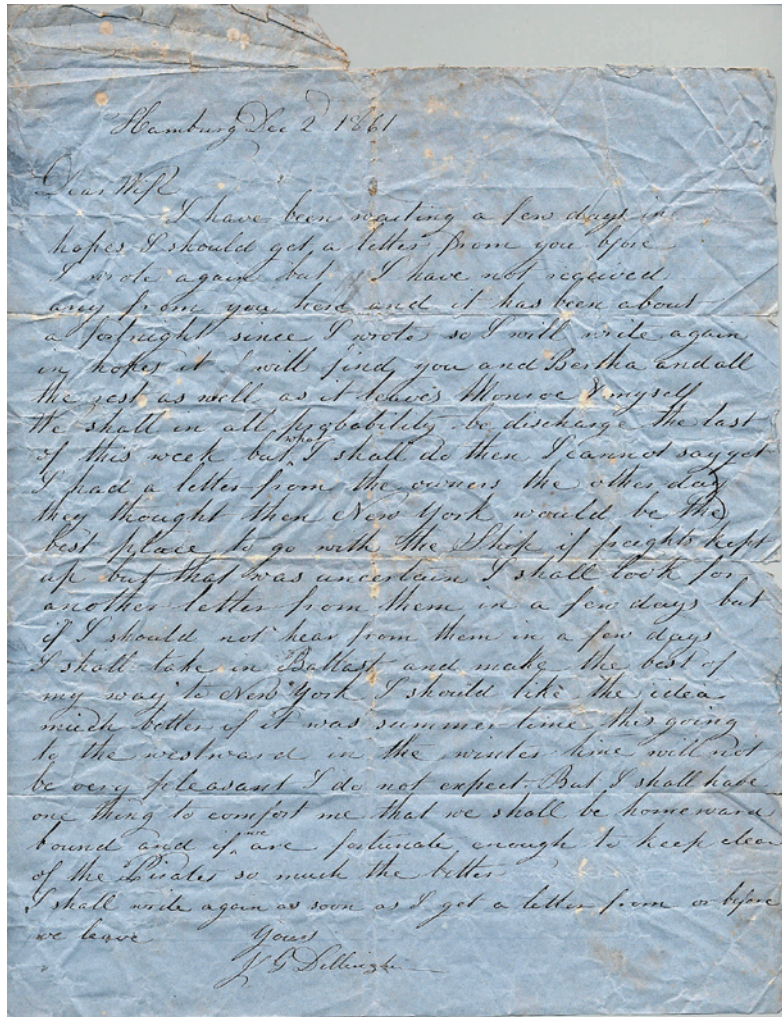 Hamburg Dec 2 1861
Dear Wife
I have been waiting a few days in
hopes I should get a letter from you bfore
I wrote again but I have not received
any from you here and it has been about
a fortnight since I wrote so I will write again
in hopes it will find you and Bertha and all
the rest as well as it leaves Monroe & myself
We shall in all probability be discharge the last
of this week but what I shall do then I cannot say yet
I had a letter from the owners the other day
they thought then New York would be the
best place to go with the Ship if freights kept
up but that was uncertain I shall look for
another letter from them in a few days but
if I should not hear from them in a few days
I shall take in Ballast and make the best of
my way to New York I should like the idea
much better if it was summer time this going
to the westward in the winter time will not
be very pleasant I do not expect. But I shall have
one thing to comfort me that we shall be homeward
bound and if we are fortunate enough to keep clear
of the Pirates so much the better
I shall write again as soon as I get a letter from or before
we leave Yours
J G Dillingham